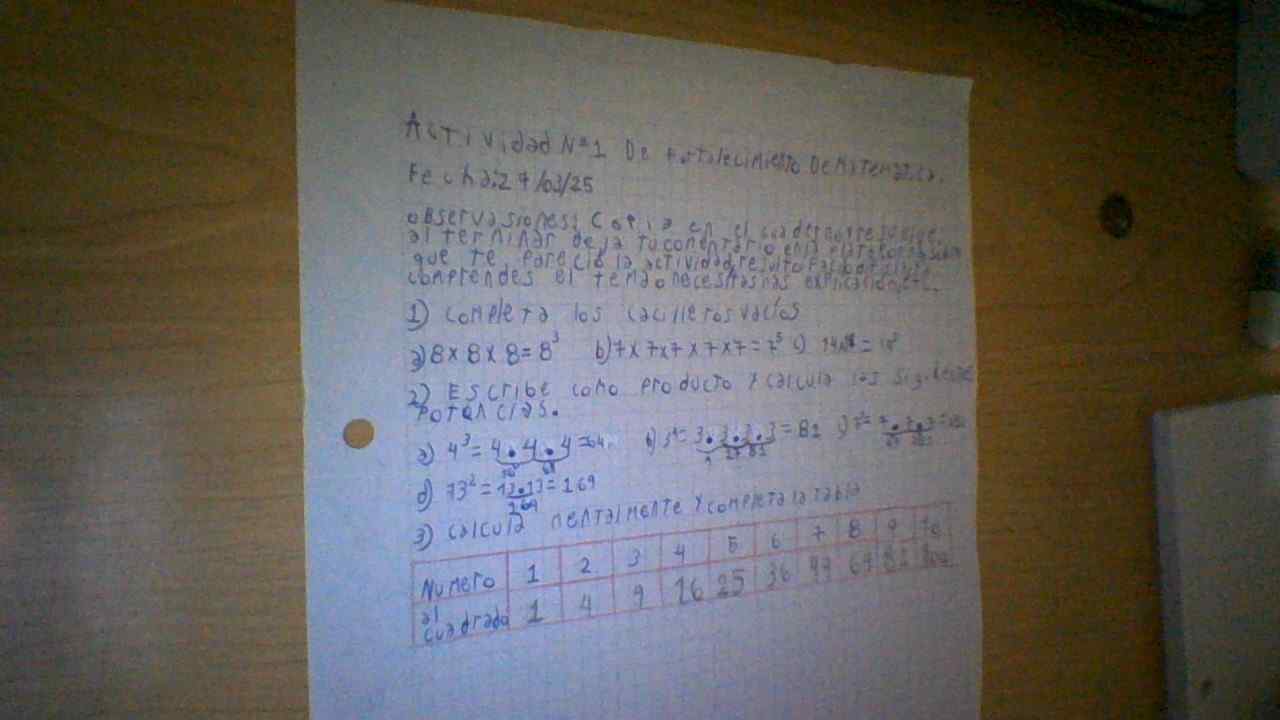 Actividad N°1 De Fortalecimiento De Matematica.
Fecha:27/03/25
observasiones: Copia en el cuaderno
al terminar deja tu comentario en la plataforma
que te parecio la actividad
comprendes el tema o necesitas mas
1) completa los
a) 8 x 8 x 8 = 8³ b) 7 x 7 x 7 x 7 x 7 = 7⁵ c)
2) Escribe como producto y calcula las siguientes
potencias.
a) 4³ = 4 . 4 . 4 = 64 b) 3⁴ = 3 . 3 . 3 . 3 = 81 c)
9 27 81
d) 13² = 13 . 13 = 169
169
3) calcula mentalmente y completa la tabla
Numero 1 2 3 4 5 6 7 8 9 10
al cuadrado 1 4 9 16 25 36 49 64 81 100